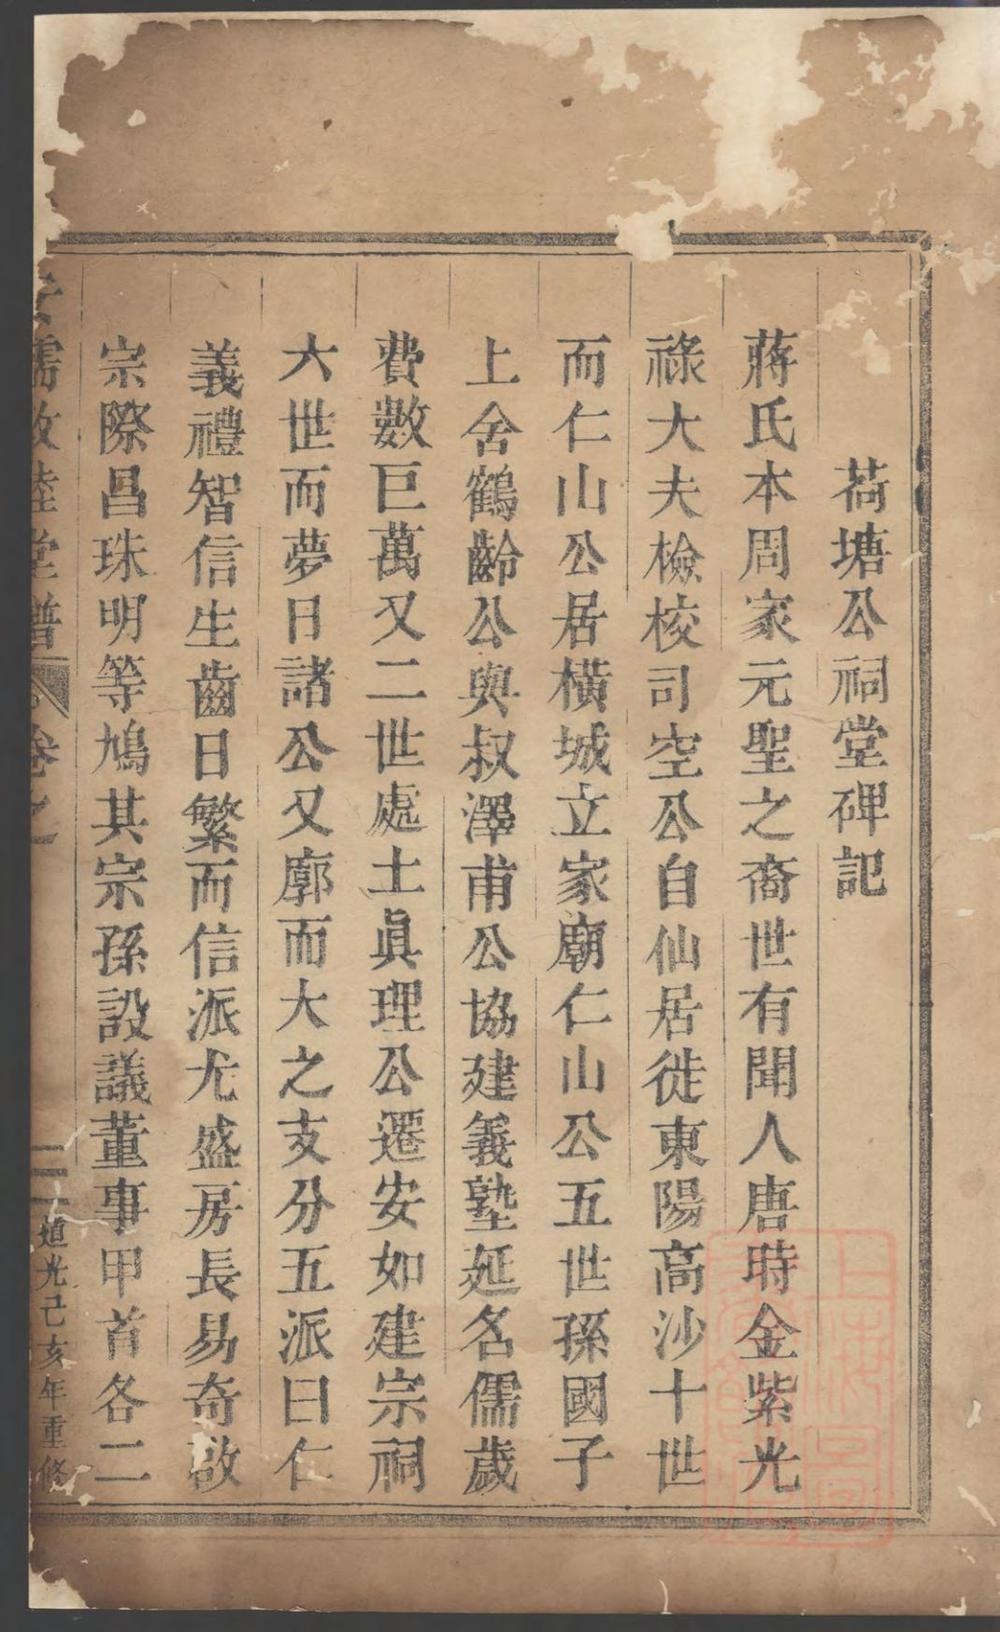 荷塘公祠堂碑記
蔣氏本周家元聖之裔世有聞人唐時金紫光
祿大夫檢校司空公自仙居徙東陽高沙十世
而仁山公居橫城立家廟仁山公五世孫國子
上舍鶴齡公與叔澤甫公協建義塾延名儒歲
費數巨萬又二世處士眞理公遷安如建宗祠
六世而夢日諸公又廓而大之支分五派曰仁
義禮智信生齒日繁而信派尤盛房長易奇啟
宗際昌珠明等鳩其宗孫設議董事甲首各二
儒敦睦堂譜 卷之 二 道光己亥年重修